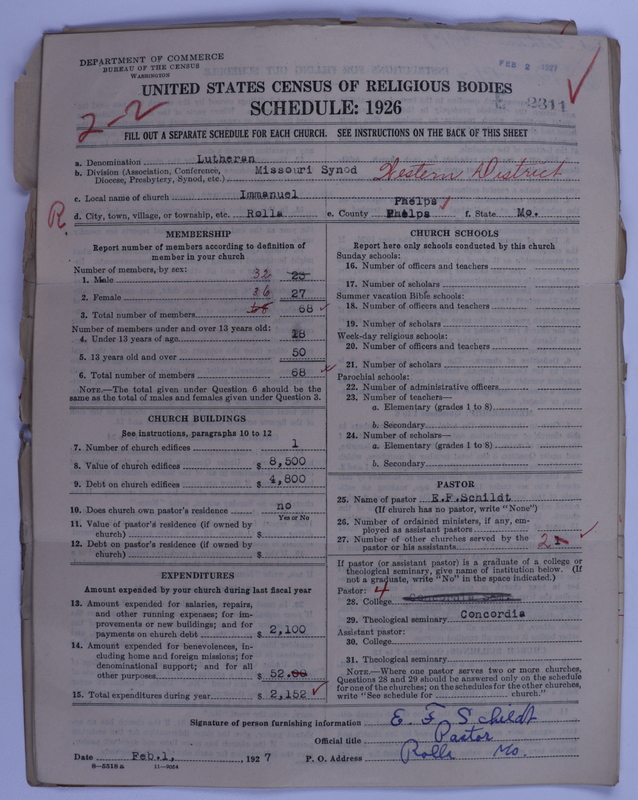 DEPARTMENT OF COMMERCE
BUREAU OF THE CENSUS
WASHINGTON
FEB 2 1927
UNITED STATES CENSUS OF RELIGIOUS BODIES
SCHEDULE: 1926
2311
2-2
FILL OUT A SEPARATE SCHEDULE FOR EACH CHURCH. SEE INSTRUCTIONS ON THE BACK OF THIS SHEET
a. Denomination Lutheran
b. Division (Association, Conference, Diocese, Presbytery, Synod, etc.) Missouri Synod Western District
c. Local name of church Immanuel
R d. City, town, village, or township, etc. Rolla e. County Phelps Phelps f. State Mo.
MEMBERSHIP
Report number of members according to definition of
member in your church
Number of members, by sex:
1. Male 32 23
2. Female 36 27
3. Total number of members 68 68
Number of members under and over 13 years old:
4. Under 13 years of age 18
5. 13 years old and over 50
6. Total number of members 68
NOTE.—The total given under Question 6 should be the
same as the total of males and females given under Question 3.
CHURCH BUILDINGS
See instructions, paragraphs 10 to 12
7. Number of church edifices 1
8. Value of church edifices $ 8,500
9. Debt on church edifices $ 4,800
10. Does church own pastor's residence? no
Yes or No
11. Value of pastor's residence (if owned by
church) $
12. Debt on pastor's residence (if owned by
church) $
EXPENDITURES
Amount expended by your church during last fiscal year
13. Amount expended for salaries, repairs,
and other running expenses; for im-
provements or new buildings; and for
payments on church debt $ 2,100
14. Amount expended for benevolences, in-
cluding home and foreign missions; for
denominational support; and for all
other purposes $ 52.00
15. Total expenditures during year $ 2,152
CHURCH SCHOOLS
Report here only schools conducted by this church
Sunday schools:
16. Number of officers and teachers
17. Number of scholars
Summer vacation Bible schools:
18. Number of officers and teachers
19. Number of scholars
Week-day religious schools:
20. Number of officers and teachers
21. Number of scholars
Parochial schools:
22. Number of administrative officers
23. Number of teachers—
a. Elementary (grades 1 to 8)
b. Secondary
24. Number of scholars—
a. Elementary (grades 1 to 8)
b. Secondary
PASTOR
25. Name of pastor E.F.Schildt
(If church has no pastor, write "None")
26. Number of ordained ministers, if any, em-
ployed as assistant pastors
27. Number of other churches served by the
pastor or his assistants 2
If pastor (or assistant pastor) is a graduate of a college or
theological seminary, give name of institution below. (If
not a graduate, write "No" in the space indicated.)
Pastor: 4
28. College
29. Theological seminary Concordia
Assistant pastor:
30. College
31. Theological seminary
NOTE.—Where one pastor serves two or more churches,
Questions 28 and 29 should be answered only on the schedule
for one of the churches; on the schedules for the other churches,
write "See schedule for ________ church."
Signature of person furnishing information E. F. Schildt
Official title Pastor
Date Feb.1, 1927 P. O. Address Rolla Mo.
8-5518a 11-9054